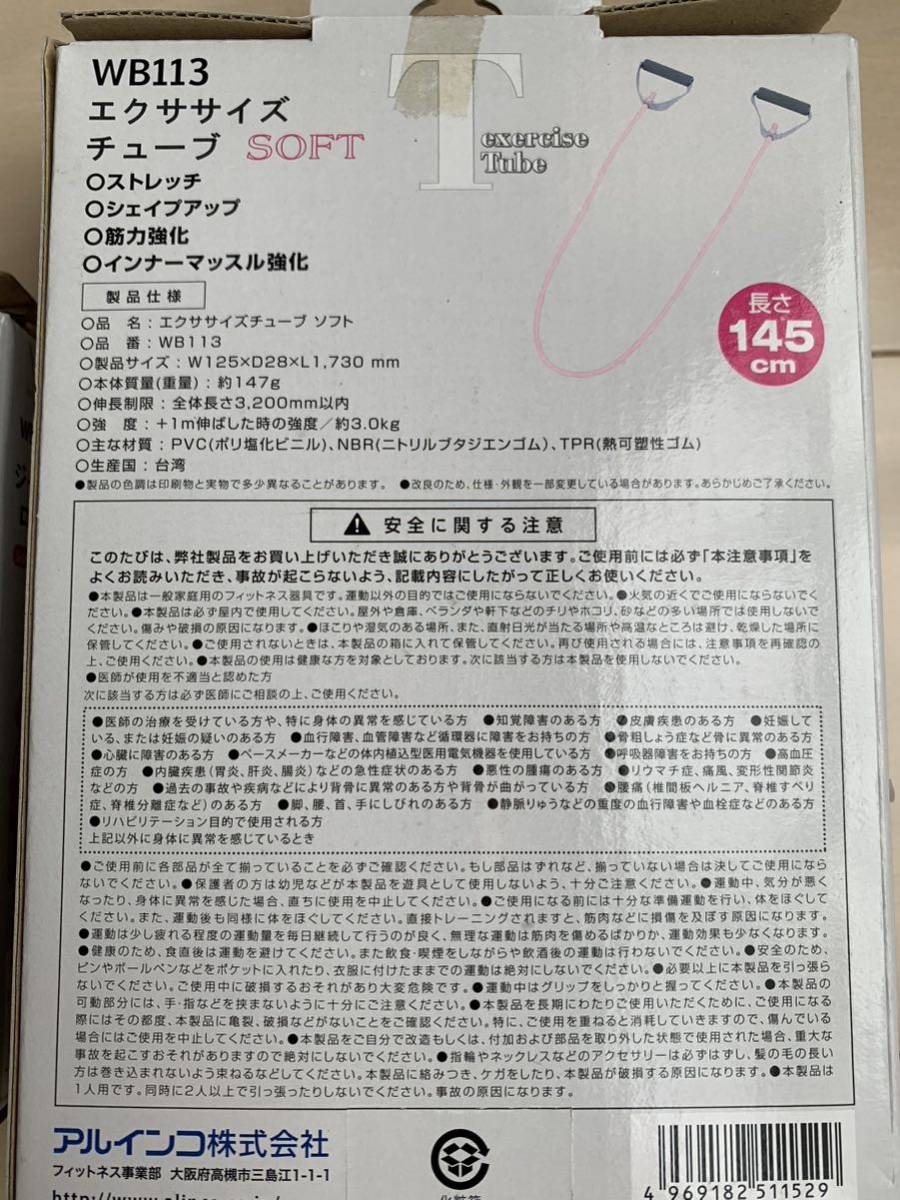 WB113
エクササイズ
チューブ SOFT
T exercise
Tube
○ストレッチ
○シェイプアップ
○筋力強化
○インナーマッスル強化
長さ
145
cm
製品仕様
○品　名：エクササイズチューブ ソフト
○品　番：WB113
○製品サイズ：W125×D28×L1,730 mm
○本体質量(重量)：約147g
○伸長制限：全体長さ3,200mm以内
○強　度：+1m伸ばした時の強度／約3.0kg
○主な材質：PVC(ポリ塩化ビニル)、NBR(ニトリルブタジエンゴム)、TPR(熱可塑性ゴム)
○生産国：台湾
●製品の色調は印刷物と実物で多少異なることがあります。 ●改良のため、仕様・外観を一部変更している場合があります。あらかじめご了承ください。
安全に関する注意
このたびは、弊社製品をお買い上げいただき誠にありがとうございます。ご使用前には必ず「本注意事項」を
よくお読みいただき、事故が起こらないよう、記載内容にしたがって正しくお使いください。
●本製品は一般家庭用のフィットネス器具です。運動以外の目的ではご使用にならないでください。●火気の近くでご使用にならないでく
ださい。●本製品は必ず屋内で使用してください。屋外や倉庫、ベランダや軒下などのチリやホコリ、砂などの多い場所では使用しないで
ください。傷みや破損の原因になります。●ほこりや湿気のある場所、また、直射日光が当たる場所や高温なところは避け、乾燥した場所に
保管してください。●ご使用されないときは、本製品の箱に入れて保管してください。再び使用される場合には、注意事項を再確認の
上、ご使用ください。●本製品の使用は健康な方を対象としております。次に該当する方は本製品を使用しないでください。
●医師が使用を不適当と認めた方
次に該当する方は必ず医師にご相談の上、ご使用ください。
●医師の治療を受けている方や、特に身体の異常を感じている方 ●知覚障害のある方 ●皮膚疾患のある方 ●妊娠して
いる、または妊娠の疑いのある方 ●血行障害、血管障害など循環器に障害をお持ちの方 ●骨粗しょう症など骨に異常のある方
●心臓に障害のある方 ●ペースメーカーなどの体内植込型医用電気機器を使用している方 ●呼吸器障害をお持ちの方 ●高血圧
症の方 ●内臓疾患(胃炎、肝炎、腸炎)などの急性症状のある方 ●悪性の腫瘍のある方 ●リウマチ症、痛風、変形性関節炎
などの方 ●過去の事故や疾病などにより背骨に異常のある方や背骨が曲がっている方 ●腰痛(椎間板ヘルニア、脊椎すべり
症、脊椎分離症など)のある方 ●脚、腰、首、手にしびれのある方 ●静脈りゅうなどの重度の血行障害や血栓症などのある方
●リハビリテーション目的で使用される方
上記以外に身体に異常を感じているとき
●ご使用前に各部品が全て揃っていることを必ずご確認ください。もし部品はずれなど、揃っていない場合は決してご使用になら
ないでください。●保護者の方は幼児などが本製品を遊具として使用しないよう、十分ご注意ください。●運動中、気分が悪く
なったり、身体に異常を感じた場合、直ちに使用を中止してください。●ご使用になる前には十分な準備運動を行い、体をほぐして
ください。また、運動後も同様に体をほぐしてください。直接トレーニングされますと、筋肉などに損傷を及ぼす原因になります。
●運動は少し疲れる程度の運動量を毎日継続して行うのが良く、無理な運動は筋肉を傷めるばかりか、運動効果も少なくなります。
●健康のため、食直後は運動を避けてください。また飲食・喫煙をしながらや飲酒後の運動は行わないでください。●安全のため、
ピンやボールペンなどをポケットに入れたり、衣服に付けたままでの運動は絶対にしないでください。●必要以上に本製品を引っ張ら
ないでください。ご使用中に破損するおそれがあり大変危険です。●運動中はグリップをしっかりと握ってください。●本製品の
可動部分には、手・指などを挟まないように十分にご注意ください。●本製品を長期にわたりご使用いただくために、ご使用になる
際にはその都度、本製品に亀裂、破損などがないことをご確認ください。特に、ご使用を重ねると消耗していきますので、傷んでいる
場合にはご使用を中止してください。●本製品をご自分で改造もしくは、付加および部品を取り外した状態で使用された場合、重大な
事故を起こすおそれがありますので絶対にしないでください。●指輪やネックレスなどのアクセサリーは必ずはずし、髪の毛の長い
方は巻き込まれないよう束ねるなどしてください。本製品に絡みつき、ケガをしたり、本製品が破損する原因になります。●本製品は
1人用です。同時に2人以上で引っ張ったりしないでください。事故の原因になります。
アルインコ株式会社
フィットネス事業部 大阪府高槻市三島江1-1-1
4 969182 511529